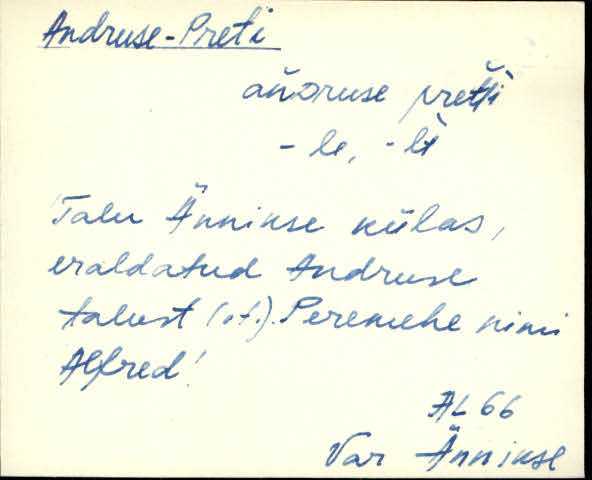 Andruse-Preti
añdruse pretì
- le, - lt
Talu Ännikse külas,
eraldatud Andruse
talust (vt.). Peremehe nimi
Alfred!
AL 66
Var Ännikse